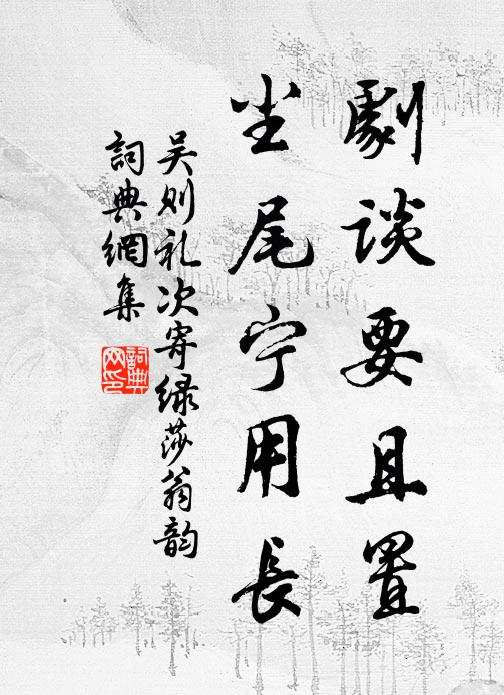 劇谈要且置
尘尾宁用長
吴则礼次寄绿莎翁韵
詞典網集
詞典网印